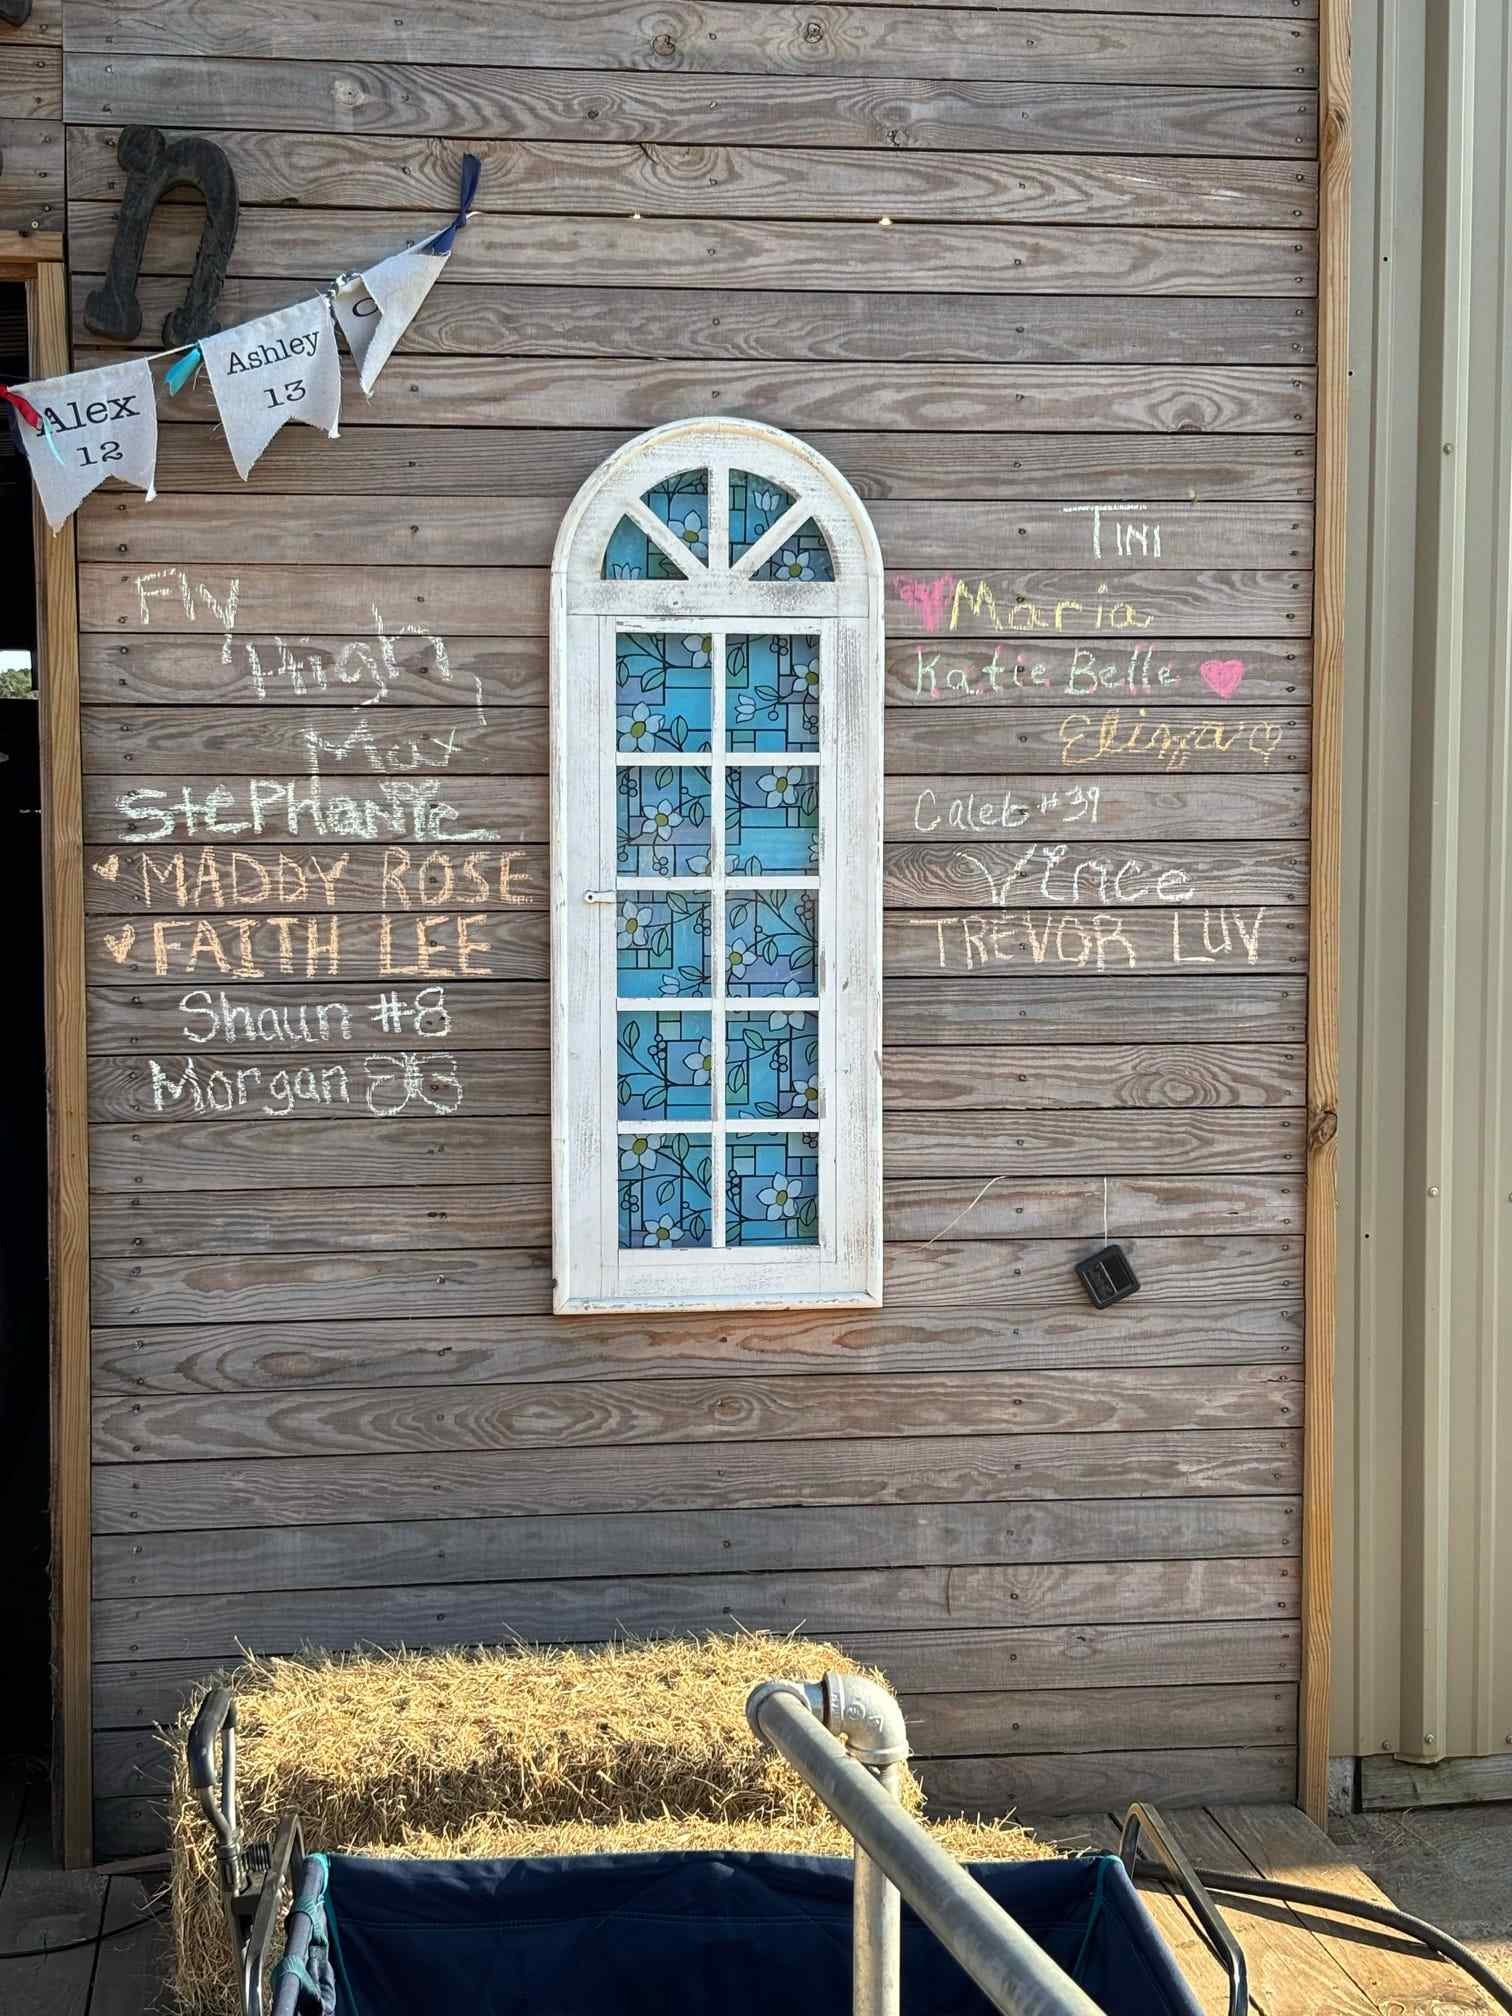 n
Alex
12
Ashley
13
C
Fly
High,
Max
Stephanie
MADDY ROSE
FAITH LEE
Shaun #8
Morgan
TINI
Maria
Katie Belle
Caleb #39
Vince
TREVOR LUV